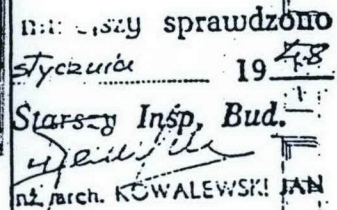 sprawdzono
stycznia 1948
Starszy Insp. Bud.
inż. arch. KOWALEWSKI JAN